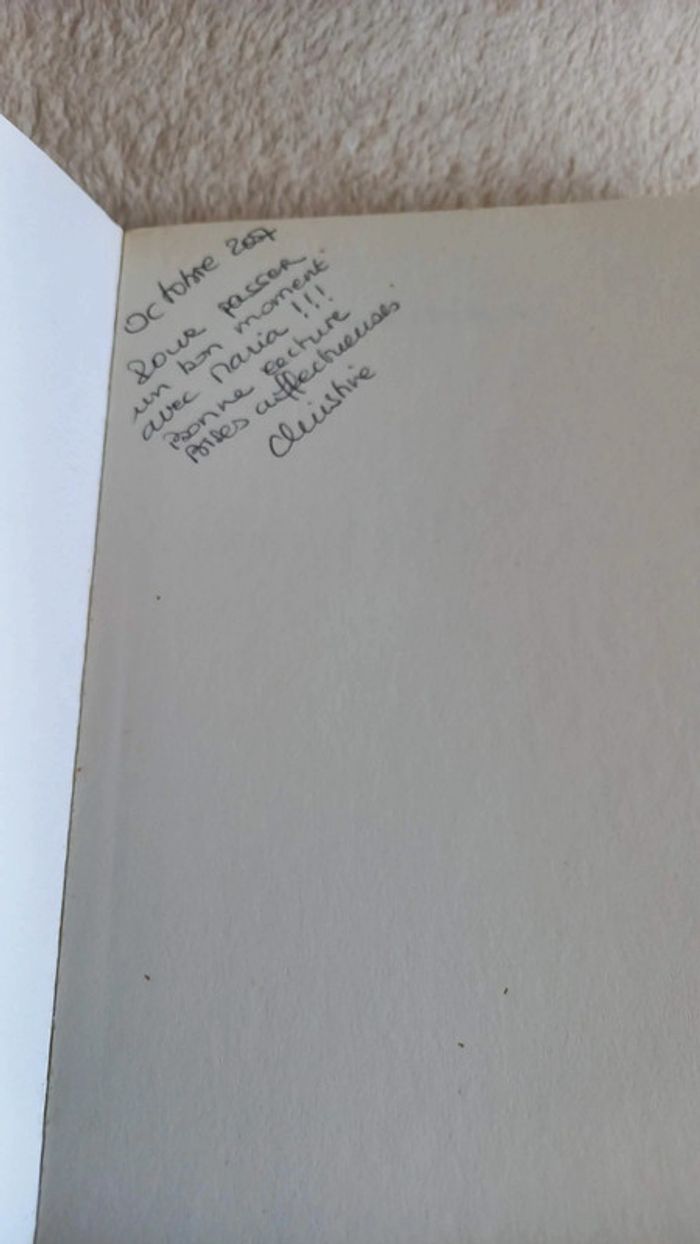 Octobre 2007
Pour passer
un bon moment
avec Maria !!!
Bonne lecture
Bises affectueuses
Christine